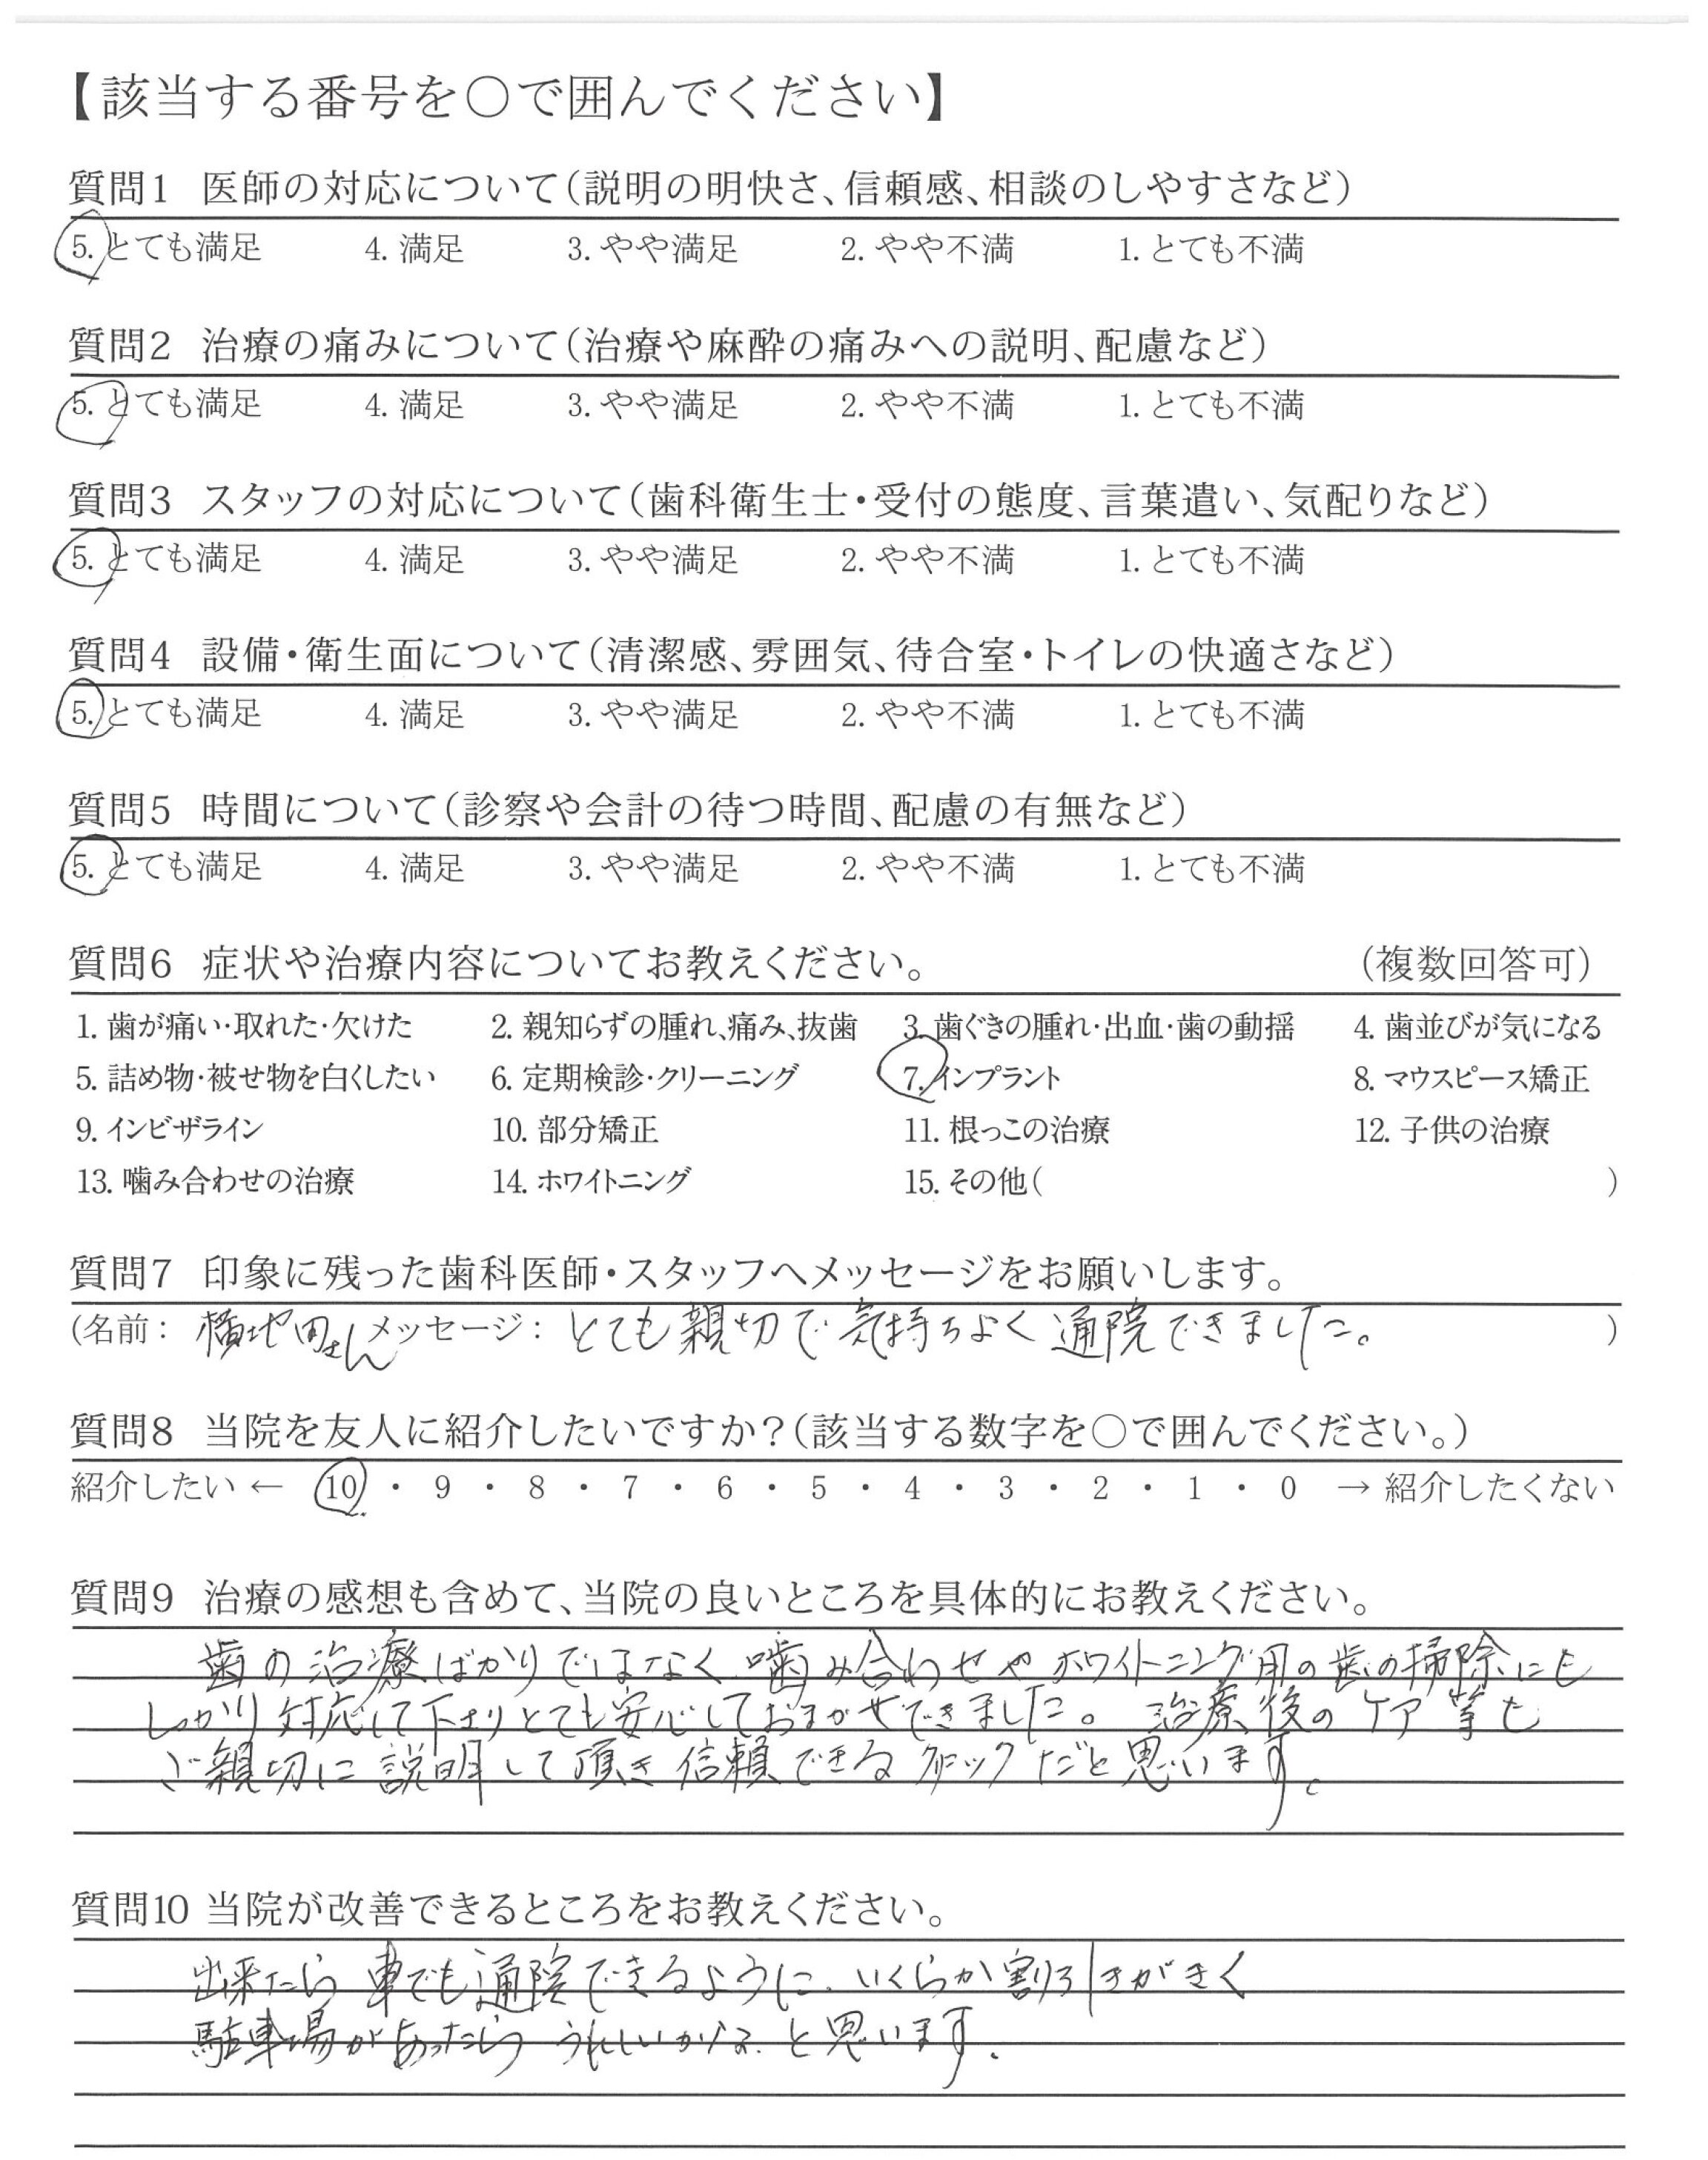 【該当する番号を○で囲んでください】
質問1 医師の対応について（説明の明快さ、信頼感、相談のしやすさなど）
5. とても満足 4. 満足 3. やや満足 2. やや不満 1. とても不満
質問2 治療の痛みについて（治療や麻酔の痛みへの説明、配慮など）
5. とても満足 4. 満足 3. やや満足 2. やや不満 1. とても不満
質問3 スタッフの対応について（歯科衛生士・受付の態度、言葉遣い、気配りなど）
5. とても満足 4. 満足 3. やや満足 2. やや不満 1. とても不満
質問4 設備・衛生面について（清潔感、雰囲気、待合室・トイレの快適さなど）
5. とても満足 4. 満足 3. やや満足 2. やや不満 1. とても不満
質問5 時間について（診察や会計の待つ時間、配慮の有無など）
5. とても満足 4. 満足 3. やや満足 2. やや不満 1. とても不満
質問6 症状や治療内容についてお教えください。 （複数回答可）
1. 歯が痛い・取れた・欠けた 2. 親知らずの腫れ、痛み、抜歯 3. 歯ぐきの腫れ・出血・歯の動揺 4. 歯並びが気になる
5. 詰め物・被せ物を白くしたい 6. 定期検診・クリーニング 7. インプラント 8. マウスピース矯正
9. インビザライン 10. 部分矯正 11. 根っこの治療 12. 子供の治療
13. 噛み合わせの治療 14. ホワイトニング 15. その他（ ）
質問7 印象に残った歯科医師・スタッフへメッセージをお願いします。
（名前： 横地田さん メッセージ： とても親切で気持ちよく通院できました。 ）
質問8 当院を友人に紹介したいですか？（該当する数字を○で囲んでください。）
紹介したい ← 10 ・ 9 ・ 8 ・ 7 ・ 6 ・ 5 ・ 4 ・ 3 ・ 2 ・ 1 ・ 0 → 紹介したくない
質問9 治療の感想も含めて、当院の良いところを具体的にお教えください。
歯の治療ばかりではなく噛み合わせやホワイトニング用の歯の掃除にも
しっかり対応して下さりとても安心しておまかせできました。 治療後のケア等も
ご親切に説明して頂き信頼できるクリニックだと思います。
質問10 当院が改善できるところをお教えください。
出来たら車でも通院できるように、いくらか割り引きがきく
駐車場があったらうれしいかな、と思います。